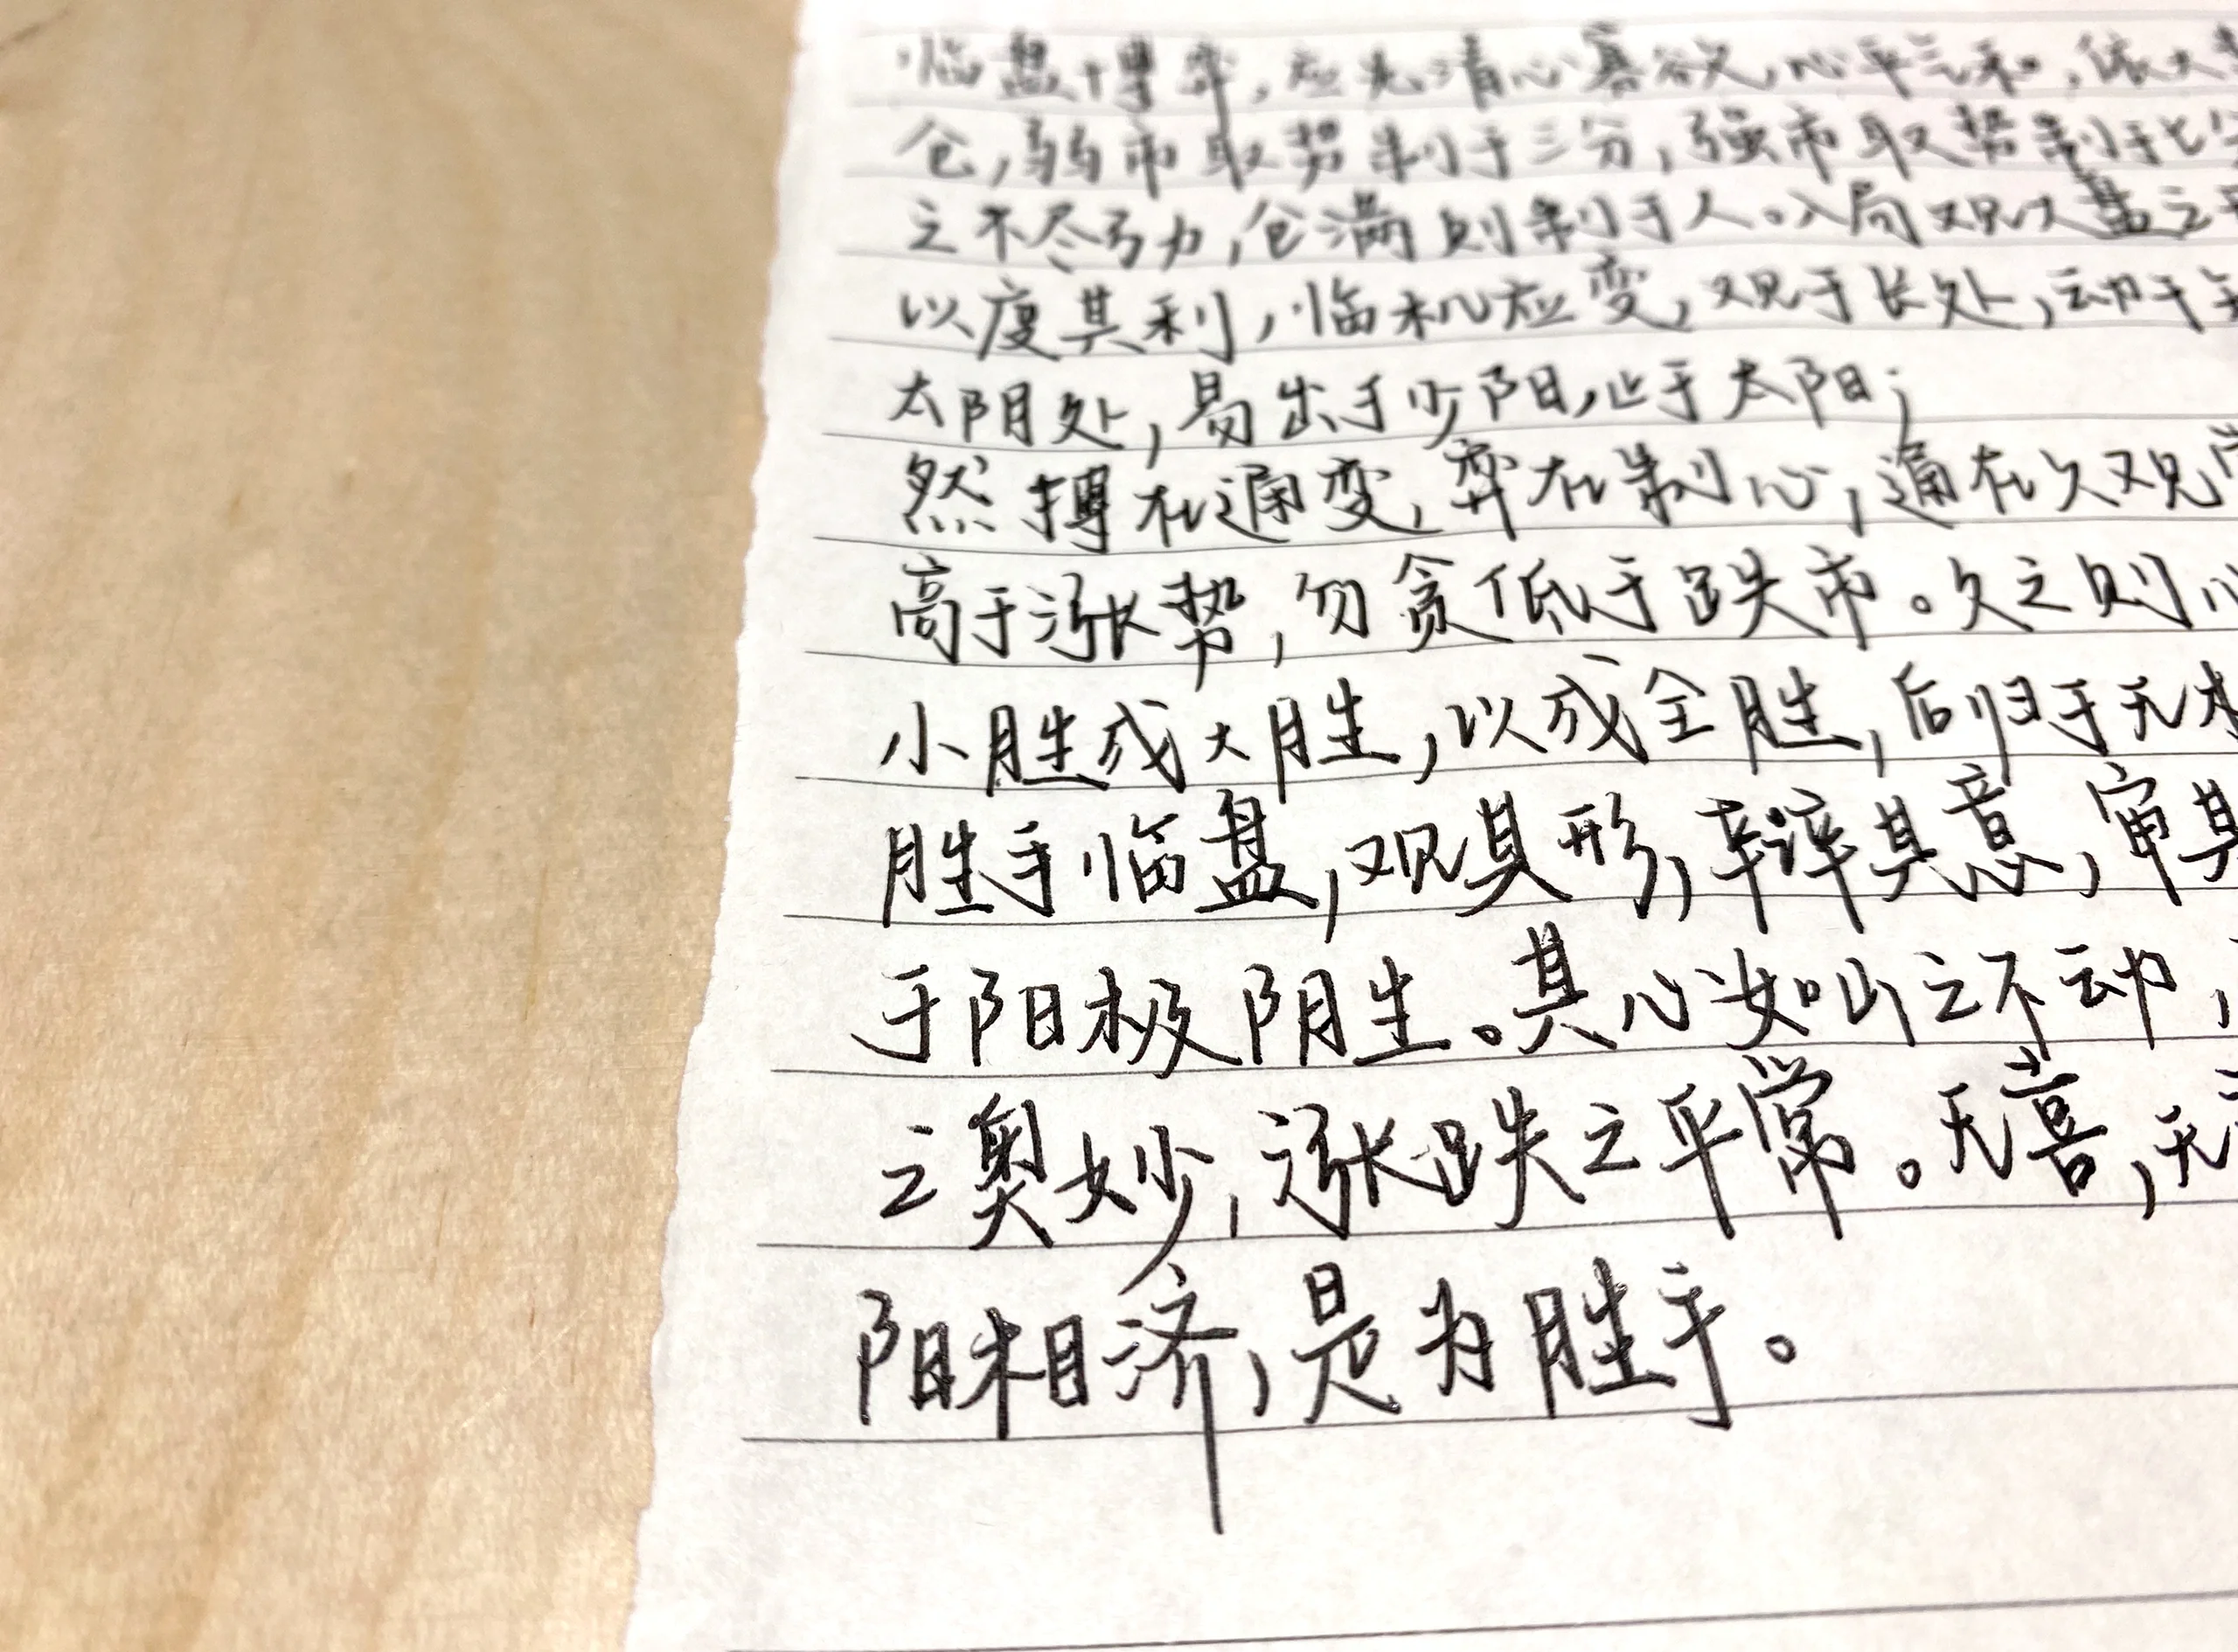 临盘博弈,应先清心寡欲,心平气和,依大
仓,弱市取势制于三分,强市取势制于七分
之不尽引力,仓满则制于人。入局观大盘之
以度其利,临机应变,观于长处,动于
太阴处,易出于少阳,止于太阳;
然搏在通变,弈在制心,通在久观,
高于涨势,勿贪低于跌市。久之则心
小胜成大胜,以成全胜,后归于无
胜手临盘,观其形,辩其意,审其
于阳极阴生。其心如山之不动,
之奥妙,涨跌之平常。无喜,无
阳相济,是为胜手。